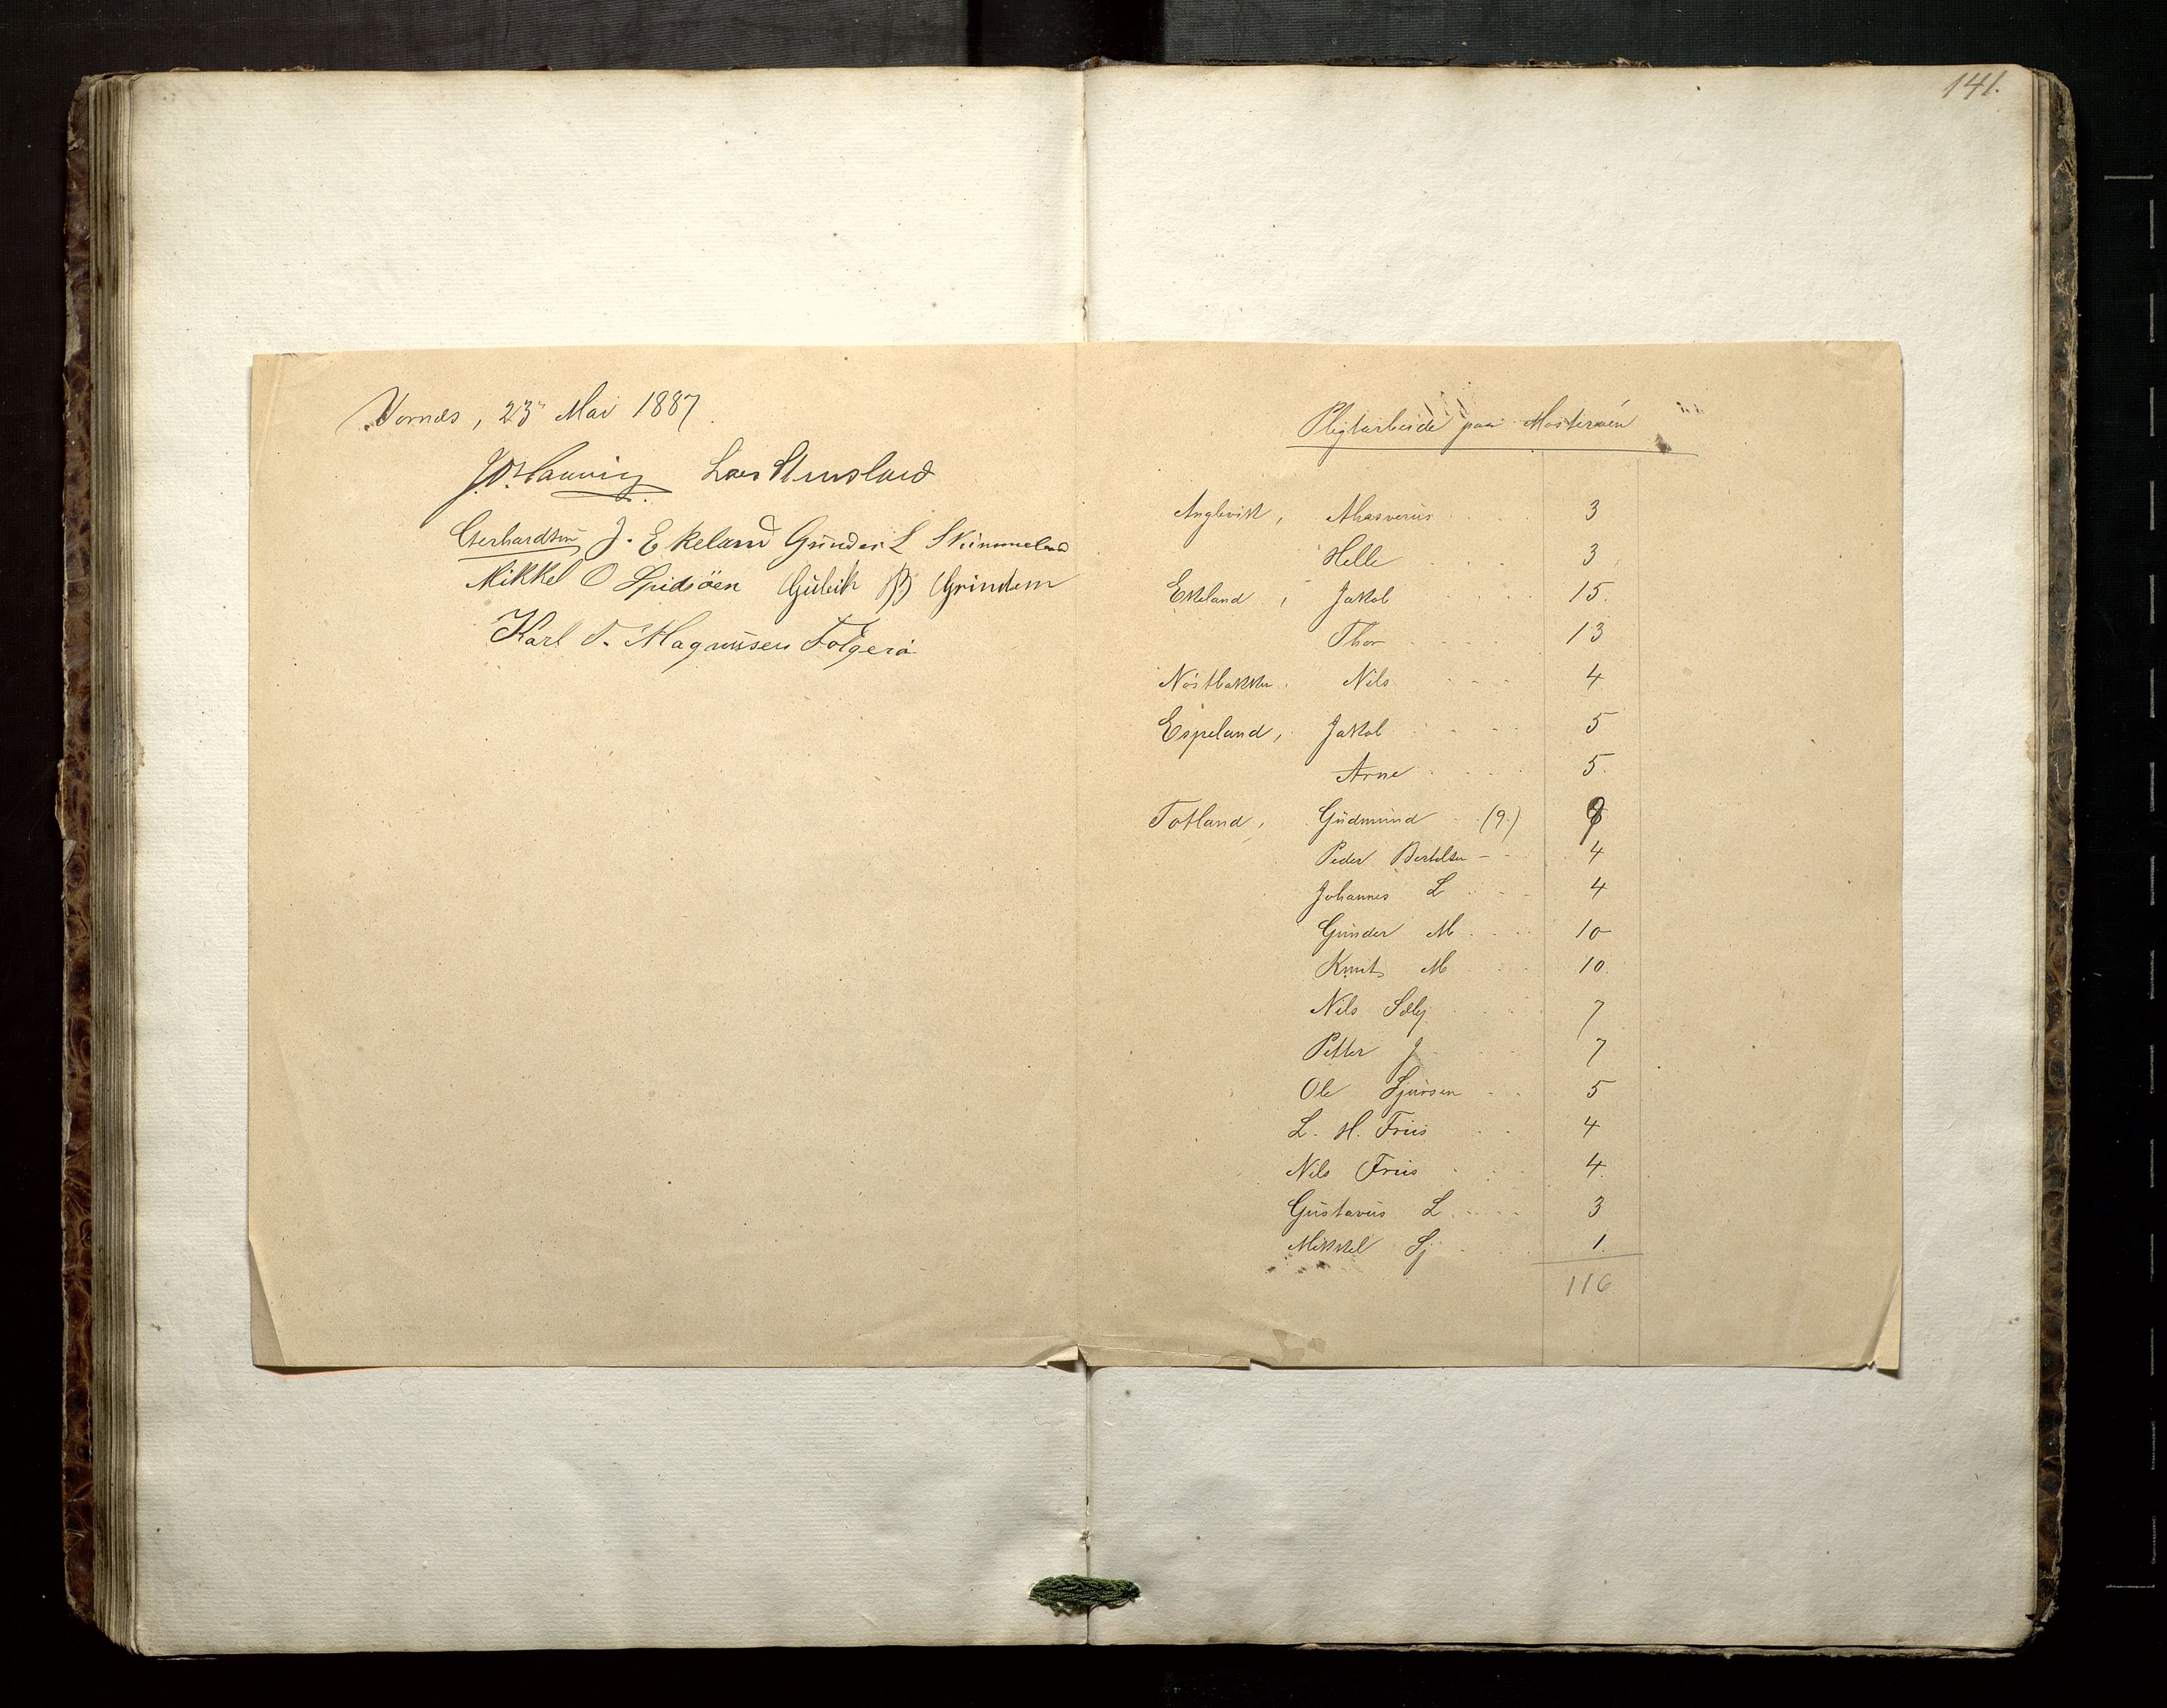 141.
Vornæs, 23 Mai 1887
Lars Stensland
Gerhardsen J. Ekeland Gunder L Skimmeland
Mikkel O Spidsöen Guleik B Grindem
Karl T. Magnusen Folgerø
Pligtarbeide paa Mosterøen
Anglevik, Ahasverus 3
Helle 3
Ekeland, Jakob 15.
Thor 13
Nøstbakken. Nils 4
Espeland, Jakob 5
Arne 5.
Totland, Gudmund (9.) 9
Peder Bertelsen 4
Johannes L 4
Gunder M 10
Knut M 10.
Nils Selj 7
Petter J 7
Ole Sjursen 5
L. H. Friis 4
Nils Friis 4.
Gustavus L 3
Mikkel Sj 1.
116